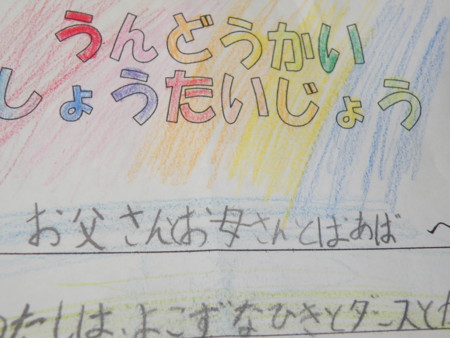 うんどうかい
しょうたいじょう
お父さんとお母さんとばあば へ
わたしは、よこずなひきとダンスとか